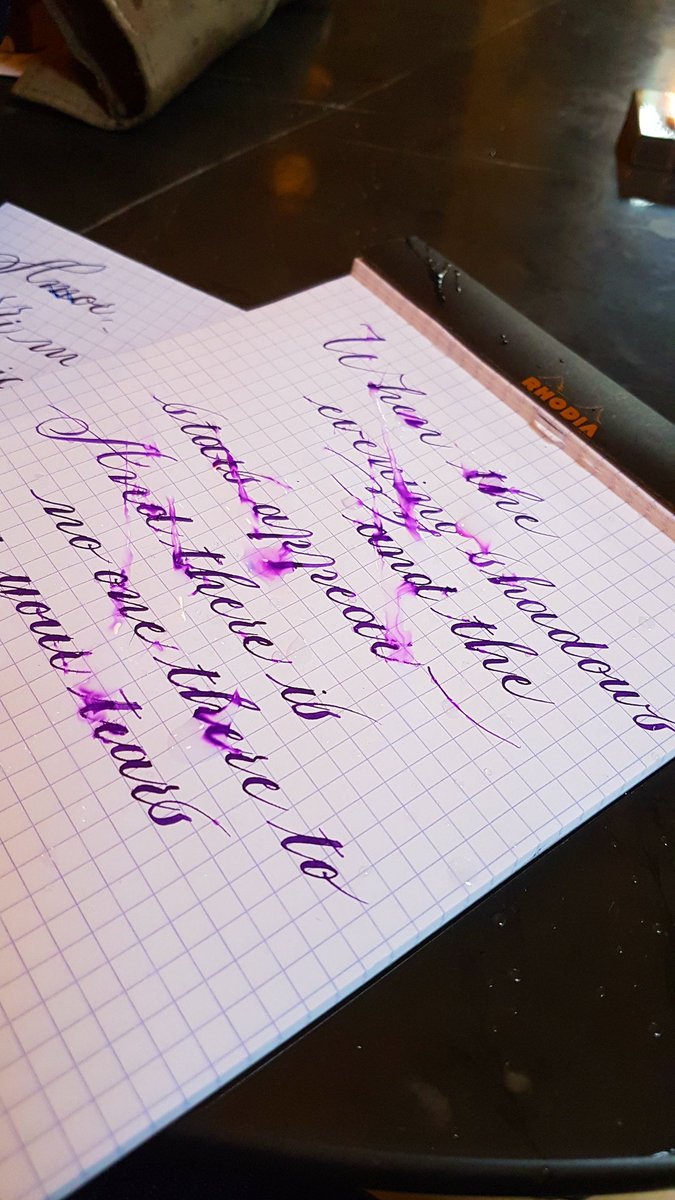 When the
evening shadows
and the
stars appear
And there is
no one there to
your tears
Amor,
RHODIA